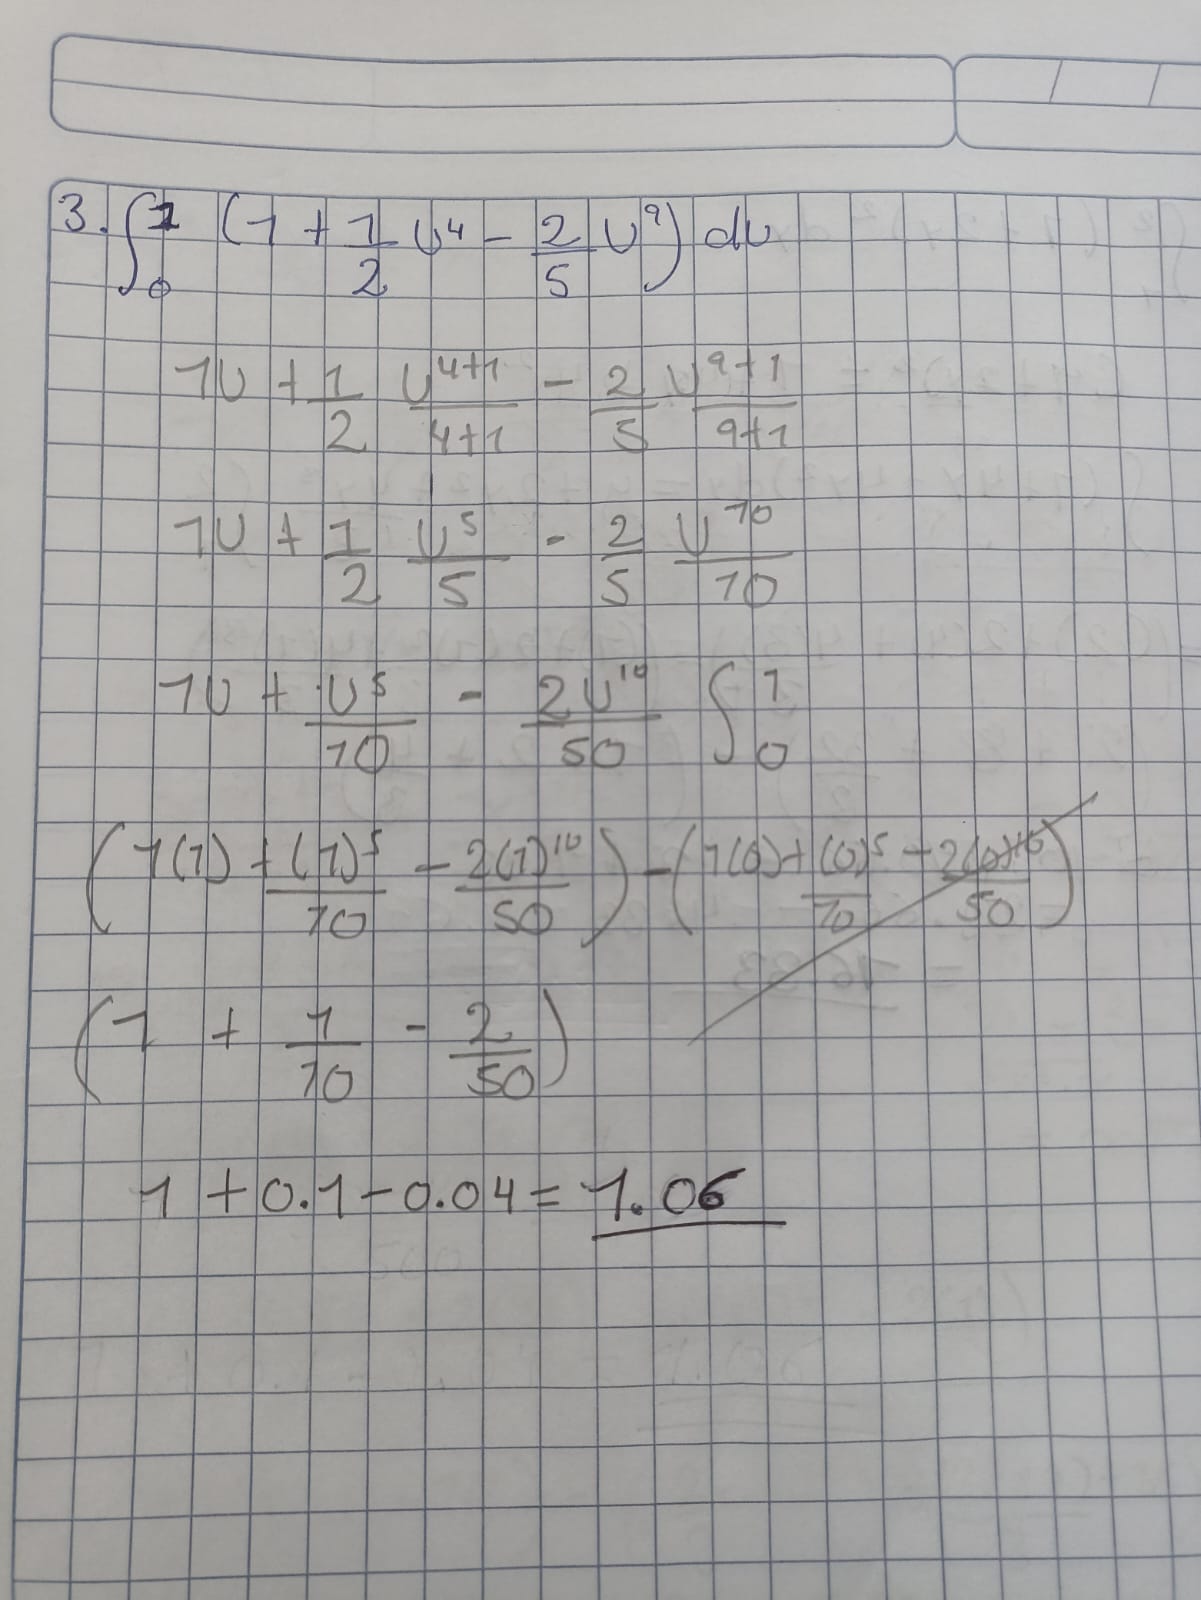 3. ∫₀¹ (1 + 1/2 u⁴ - 2/5 u⁹) du
1u + 1/2 u⁴⁺¹/4+1 - 2/5 u⁹⁺¹/9+1
1u + 1/2 u⁵/5 - 2/5 u¹⁰/10
1u + u⁵/10 - 2u¹⁰/50 ∫₀¹
(1(1) + (1)⁵/10 - 2(1)¹⁰/50) - (1(0) + (0)⁵/10 - 2(0)¹⁰/50)
(1 + 1/10 - 2/50)
1 + 0.1 - 0.04 = 1.06